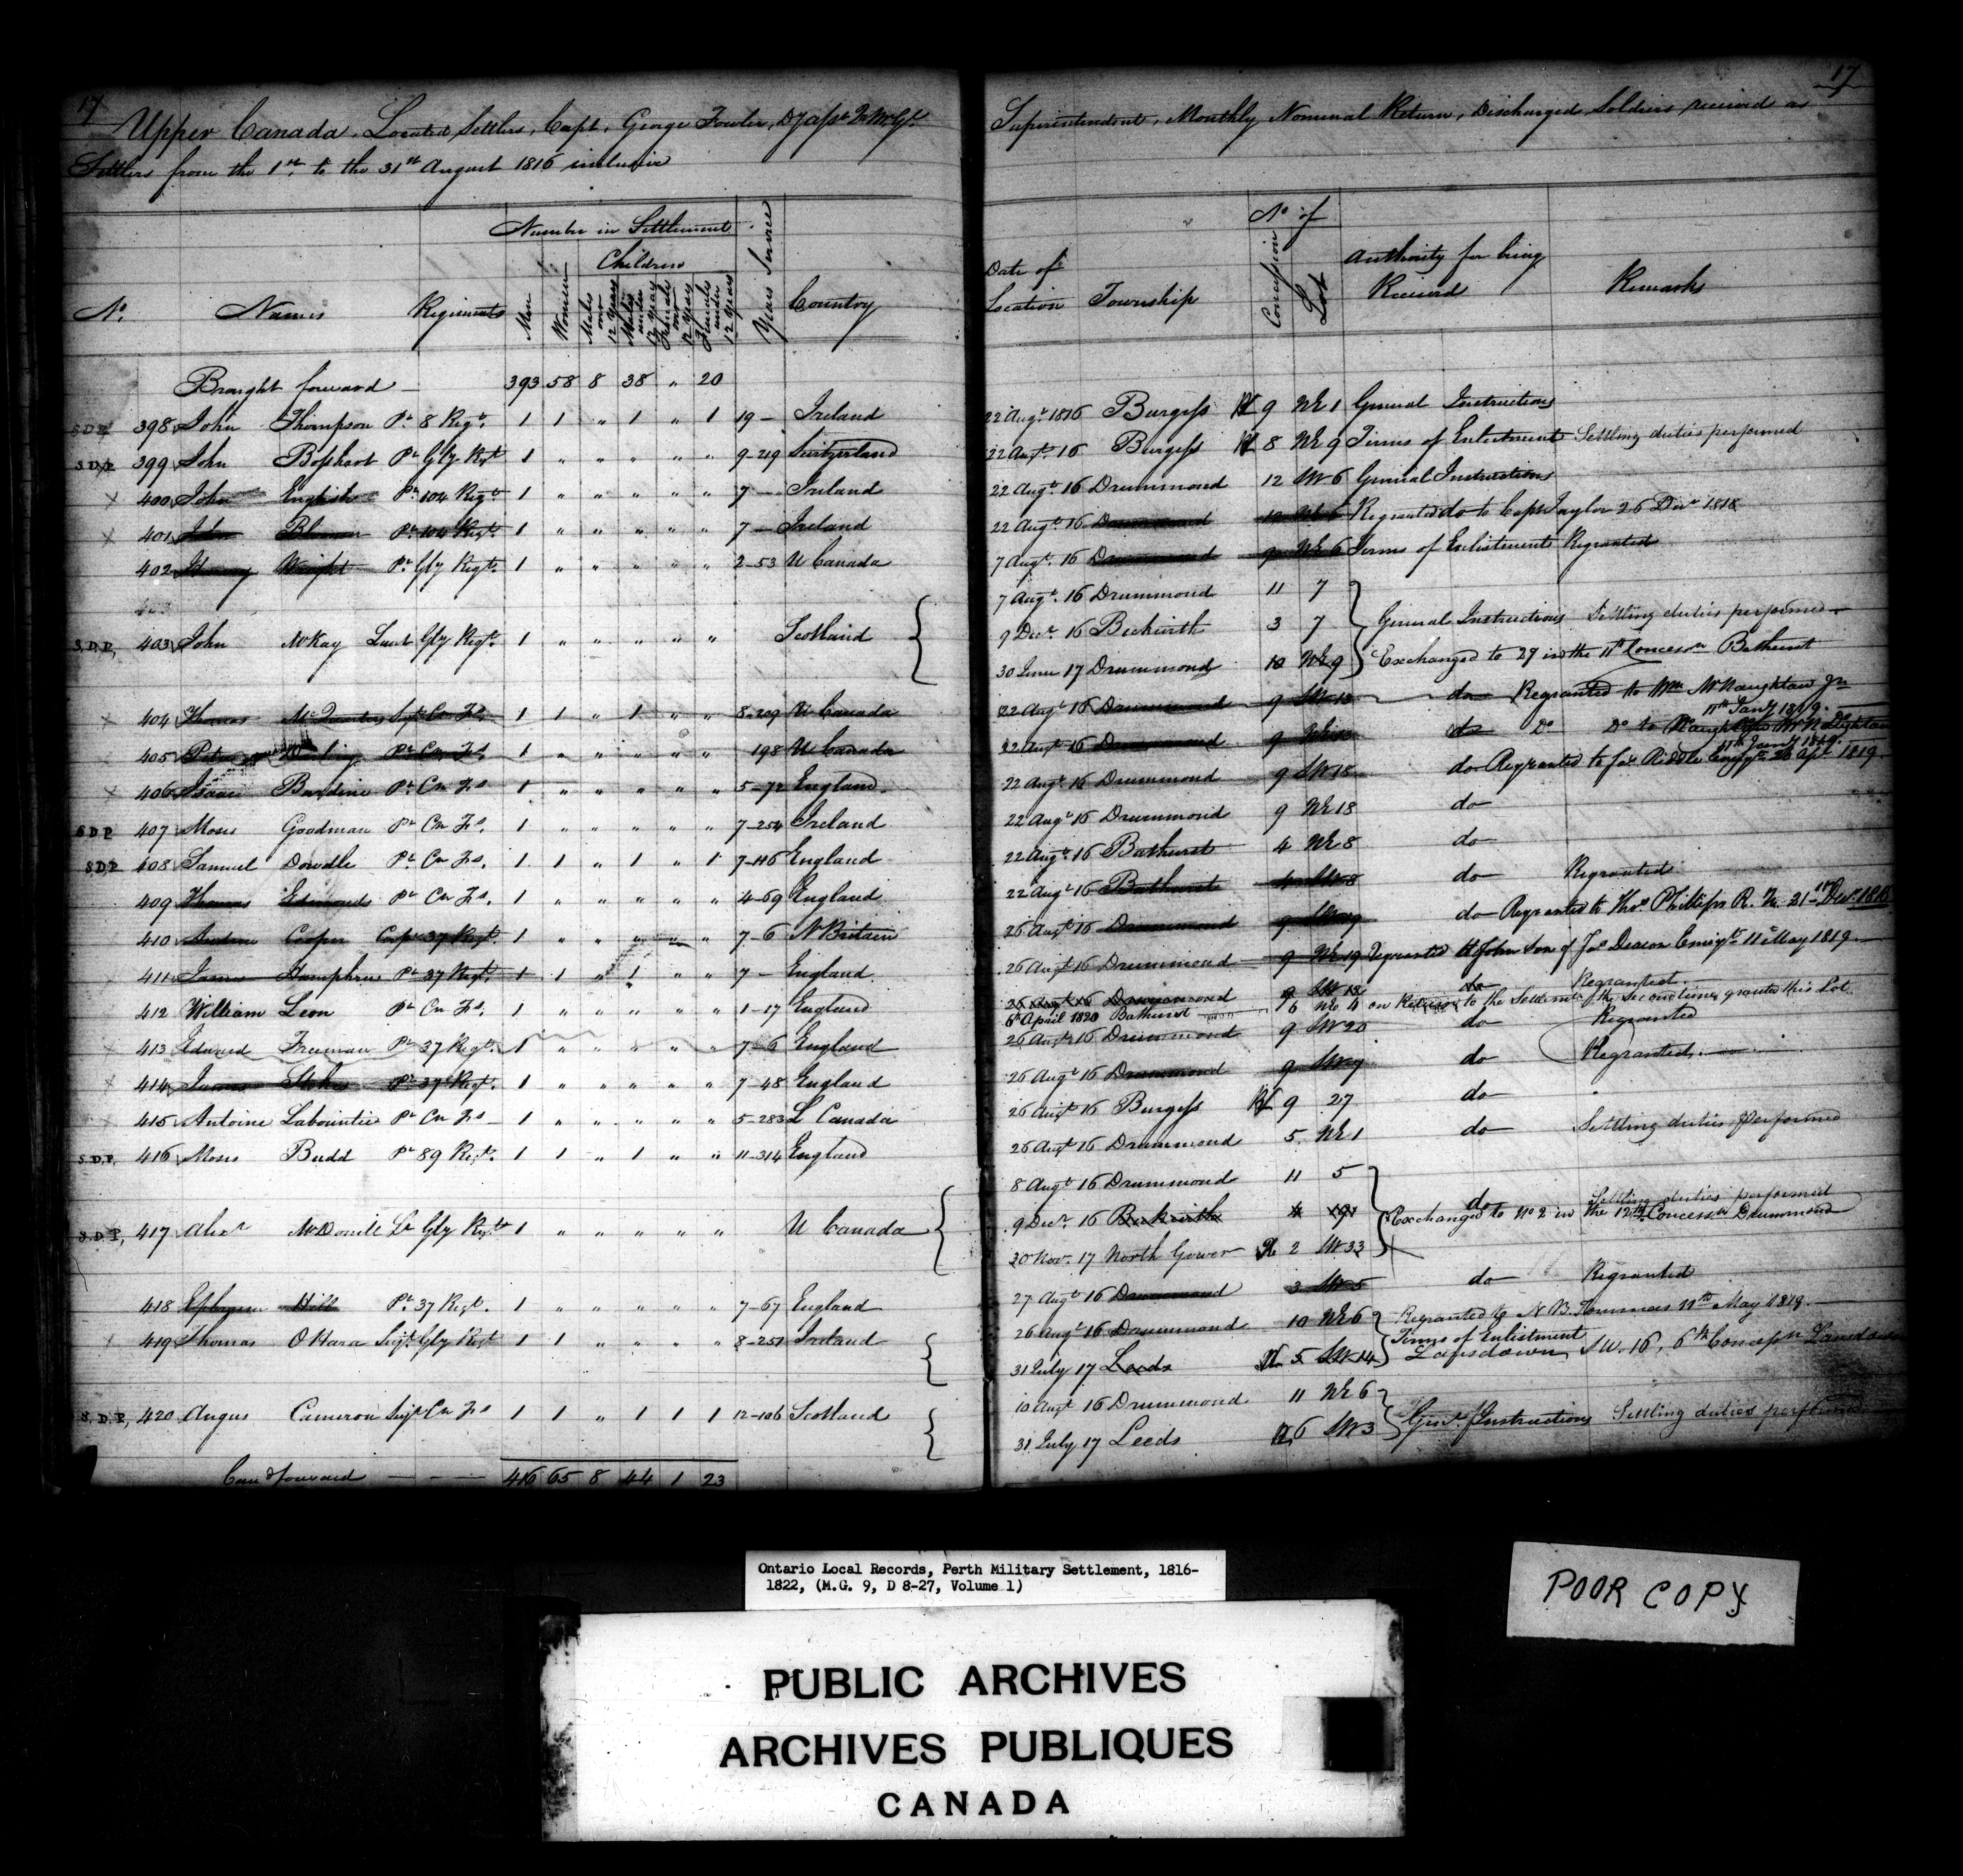 17
Upper Canada, Located Settlers, Capt. George Fowler,
Settlers from the 1st to the 31st August 1816 inclusive
Number in Settlement
Children
No. Names Regiments Men Women Males over 12 years Males under 12 years Females over 12 years Females under 12 years Years Service Country
Brought forward — 393 58 8 38 " 20
S.D.P. 398 John Thompson Pt 8 Regt. 1 1 " 1 " 1 19 — Ireland
S.D.P. 399 John Pt Gly Rgt 1 " " " " " 9-219 Switzerland
X 400 John English Pt 104 Regt 1 " " " " " 7 — Ireland
X 401 John Pt 104 Regt. 1 " " " " " 7 — Ireland
402 Henry Wright Pt Gly Regt. 1 " " " " " 2-53 U Canada
403
S.D.P. 403 John McKay Lieut Gly Regt. 1 " " " " " Scotland
X 404 Thomas Sjt Cn Fs. 1 1 " 1 " " 8-209 U Canada
X 405 Peter Pt Cn Fs 1 " " " " " 198 U Canada
X 406 Isaac Pt Cn Fs 1 " " " " " 5-72 England
S.D.P. 407 Moses Goodman Pt Cn Fs. 1 " " " " " 7-254 Ireland
S.D.P. 408 Samuel Dowdle Pt Cn Fs. 1 1 " 1 " 1 7-116 England
409 Thomas Edmonds Pt Cn Fs. 1 " " " " " 4-69 England
X 410 Andrew Cooper Corpl 37 Regt. 1 " " " " " 7-6 N Britain
X 411 James Humphries Pt 37 Regt. 1 1 " 1 " " 7 — England
412 William Leon Pt Cn Fs. 1 " " " " " 1-17 England
X 413 Edward Freeman Pt 37 Regt. 1 " " " " " 7-6 England
X 414 James Stokes Pt 37 Regt. 1 " " " " " 7-48 England
X 415 Antoine Labountie Pt Cn Fs — 1 " " " " " 5-283 L Canada
S.D.P. 416 Moses Budd Pt 89 Regt. 1 1 " 1 " " 11-314 England
S.D.P. 417 Alexr McDonell Lt Gly Regt 1 " " " " " U Canada
418 Ephraim Hill Pt 37 Regt. 1 " " " " " 7-67 England
X 419 Thomas OHara Serjt Gly Regt 1 1 " " " " 8-251 Ireland
S.D.P. 420 Angus Cameron Serjt Cn Fs 1 1 " 1 1 1 12-106 Scotland
Carrd forward — — — 416 65 8 44 1 23
17
Superintendent, Monthly Nominal Return, Discharged Soldiers received as
No of
Date of Location Township Concession Lot Authority for being Received Remarks
22 Augt 1816 Burgess 9 NE 1 General Instructions
22 Augt. 16 Burgess 8 NE 9 Terms of Enlistment Settling duties performed
22 Augt. 16 Drummond 12 SW 6 General Instructions
22 Augt. 16 Drummond Regranted do to Capt Taylor 26 Decr 1818
7 Augt. 16 Drummond 9 NE 6 Terms of Enlistment Regranted
7 Augt. 16 Drummond 11 7
9 Decr. 16 Beckwith 3 7 General Instructions Settling duties performed
30 June 17 Drummond 10 NE 9 Exchanged to 27 in the 11th Concessn Bathurst
22 Augt 16 Drummond 9 SW 13 do Regranted to Wm McNaughton Jr
11th Jany 1819.
22 Augt 16 Drummond 9 do Do Do to McNaughton
11th Jany 1819.
22 Augt. 16 Drummond 9 SW 18 do Regranted to Jas Riddle 26 Apl 1819
22 Augt 16 Drummond 9 NE 18 do
22 Augt. 16 Bathurst 4 NE 8 do
22 Augt 16 Bathurst 4 SW 8 do Regranted
26 Augt 16 Drummond 9 SW 19 do Regranted to Thos Phillips R. N. 21 Decr. 1816
26 Augt 16 Drummond 9 NE 19 Regranted to John Son of Jas Deacon Emigt 11 May 1819
26 Augt 16 Drummond 9 do Regranted
6th April 1820 Bathurst 6 NE 4 on to the Settlemt the second time grante this Lot
26 Augt 16 Drummond 9 SW 20 do Regranted
26 Augt 16 Drummond 9 SW 9 do Regranted
26 Augt 16 Burgess 9 27 do
26 Augt 16 Drummond 5 NE 1 do Settling duties performed
8 Augt 16 Drummond 11 5
9 Decr. 16 Beckwith 4 19 do Settling duties performed
Exchanged to No 2 in the 12th Concessn Drummond
30 Nov. 17 North Gower 2 SW 33
27 Augt 16 Drummond 3 SW 5 do Regranted
26 Augt 16 Drummond 10 NE 6 Regranted to N. B. Tommas 11th May 1819
Terms of Enlistment
31 July 17 Leeds 5 SW 14 Lansdown SW. 16, 6th Concessn Lansdown
10 Augt 16 Drummond 11 NE 6
31 July 17 Leeds 6 SW 3 Genl. Instructions Settling duties performed
Ontario Local Records, Perth Military Settlement, 1816-
1822, (M.G. 9, D 8-27, Volume 1)
POOR COPY
PUBLIC ARCHIVES
ARCHIVES PUBLIQUES
CANADA